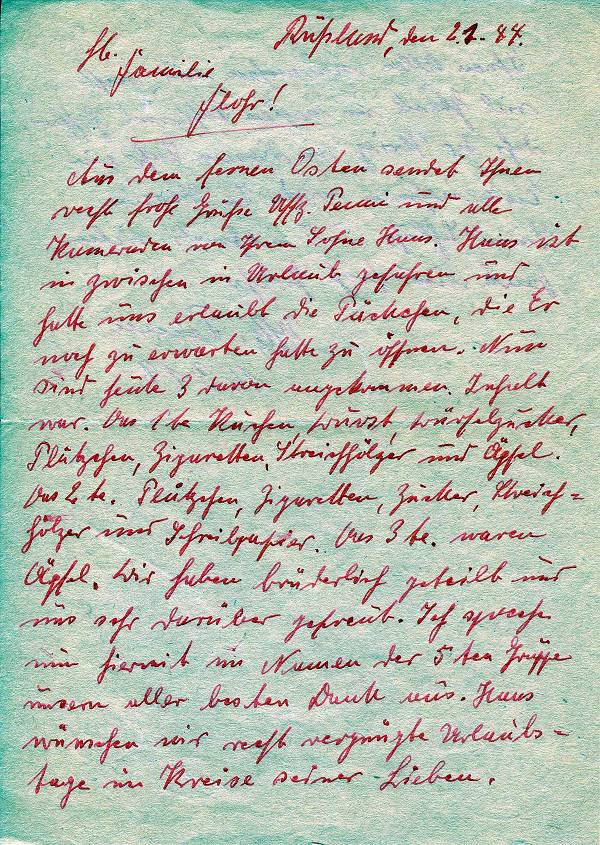 Rußland, den 2.1.44.
Familie
Flohr!
Aus dem fernen Osten sendet Ihnen
recht frohe Grüße Uffz. und alle
Kameraden von Ihrem Sohne Hans. Hans ist
in zwischen in Urlaub gefahren und
hatte uns erlaubt die Päckchen, die Er
noch zu erwarten hatte zu öffnen. Nun
sind heute 3 davon angekommen. Inhalt
war. Das 1 te Kuchen, Wurst, Würfelzucker,
Plätzchen, Zigaretten, Streichhölzer und Äpfel.
Das 2 te. Plätzchen, Zigaretten, Zucker, Streich=
hölzer und Schreibpapier. Das 3 te. waren
Äpfel. Wir haben brüderlich geteilt und
uns sehr darüber gefreut. Ich spreche
nun hiermit im Namen der 5 ten Gruppe
unsern aller besten Dank aus. Hans
wünschen wir recht vergnügte Urlaubs=
tage im Kreise seiner Lieben.